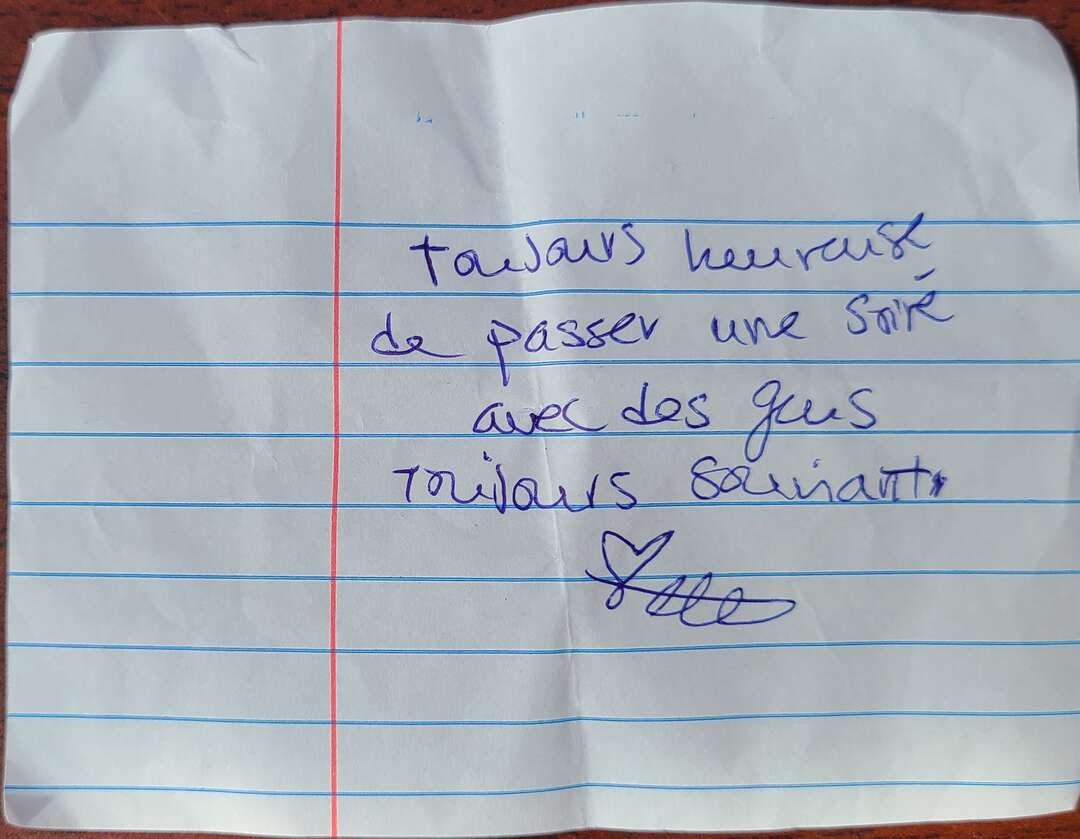 toujours heureuse
de passer une soiré
avec des gens
Toujours souriant